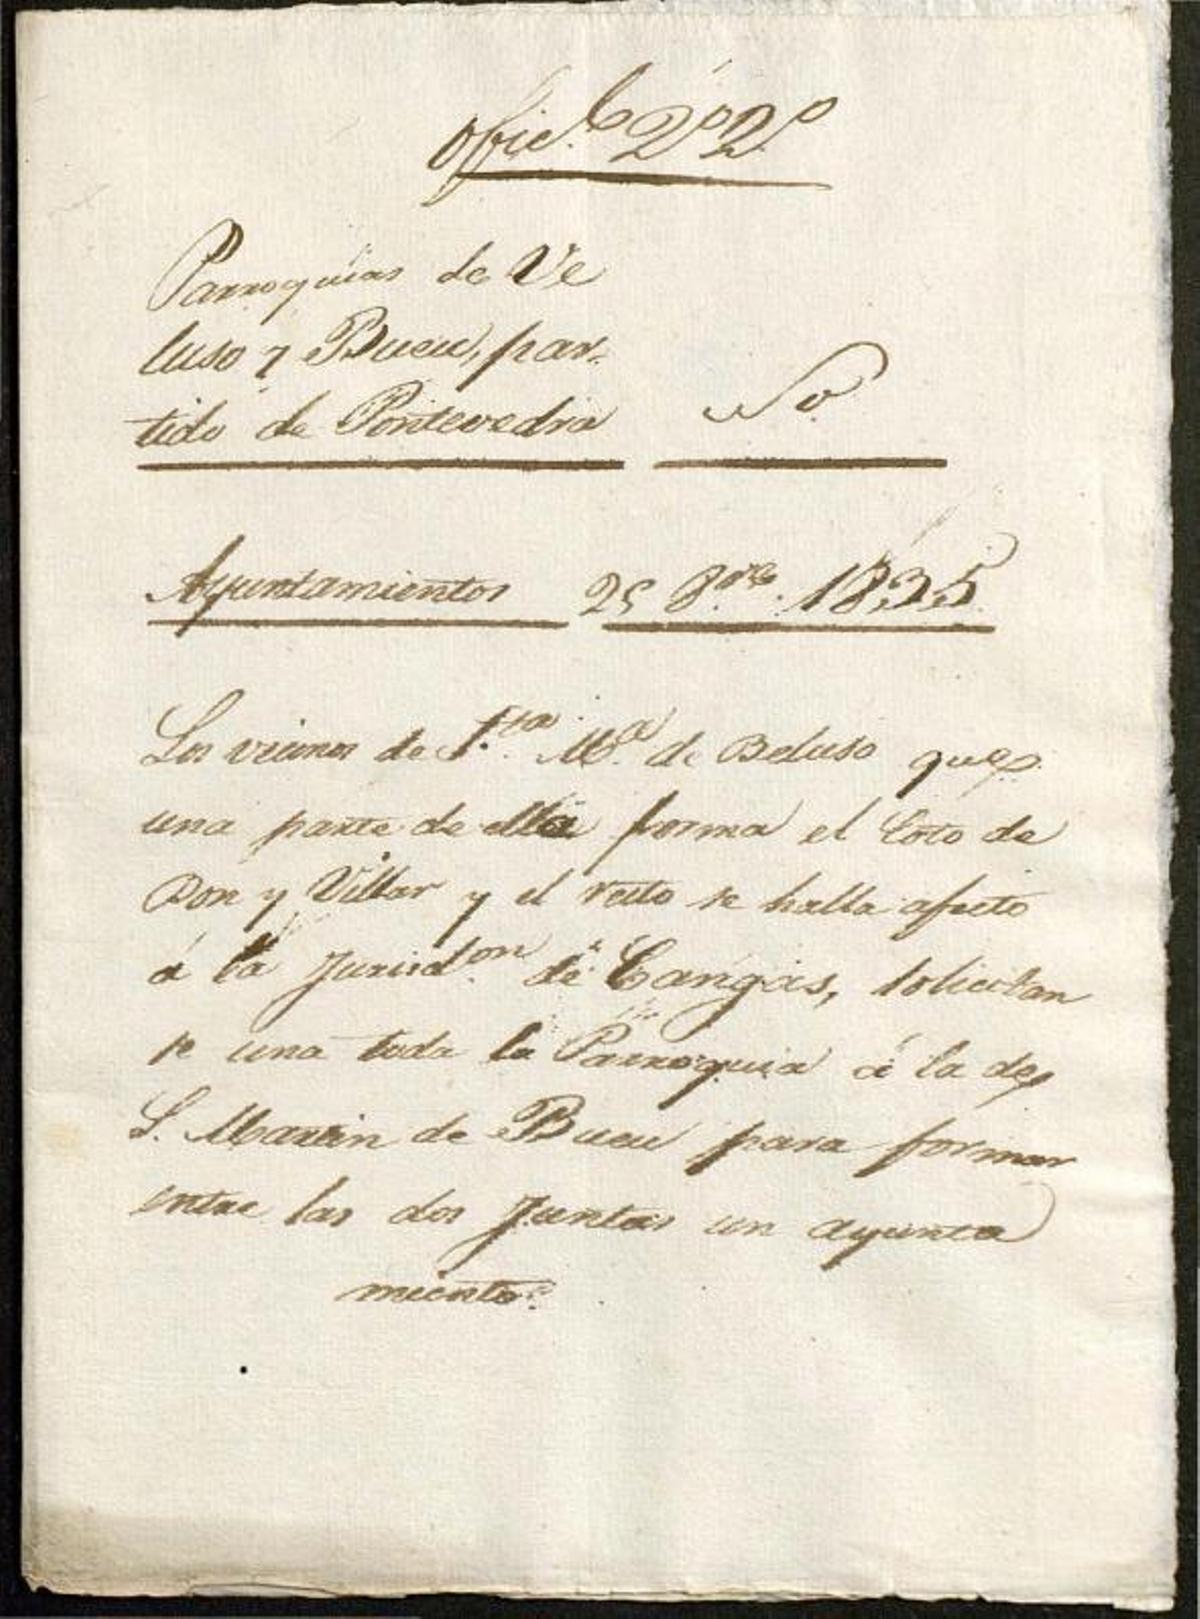 Ofic.l 2º 2º
Parroquias de Ve
luso y Bueu, par-
tido de Pontevedra
Ayuntamientos 25 8.bre 1835
Los vecinos de S.ta M.a de Beluso que
una parte de ella forma el Coto de
Don y Villar y el resto se halla afecto
á la Jurisd.on de Cangas, solicitan
se una toda la Parroquia á la de
S. Martin de Bueu para formar
entre las dos Juntas un ayunta
miento.